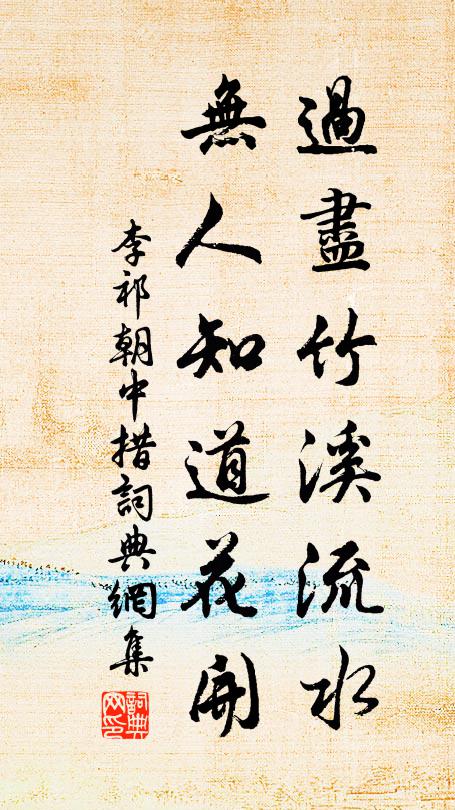 過盡竹溪流水
無人知道花開
李祁朝中措詞典網集
詞典
网印